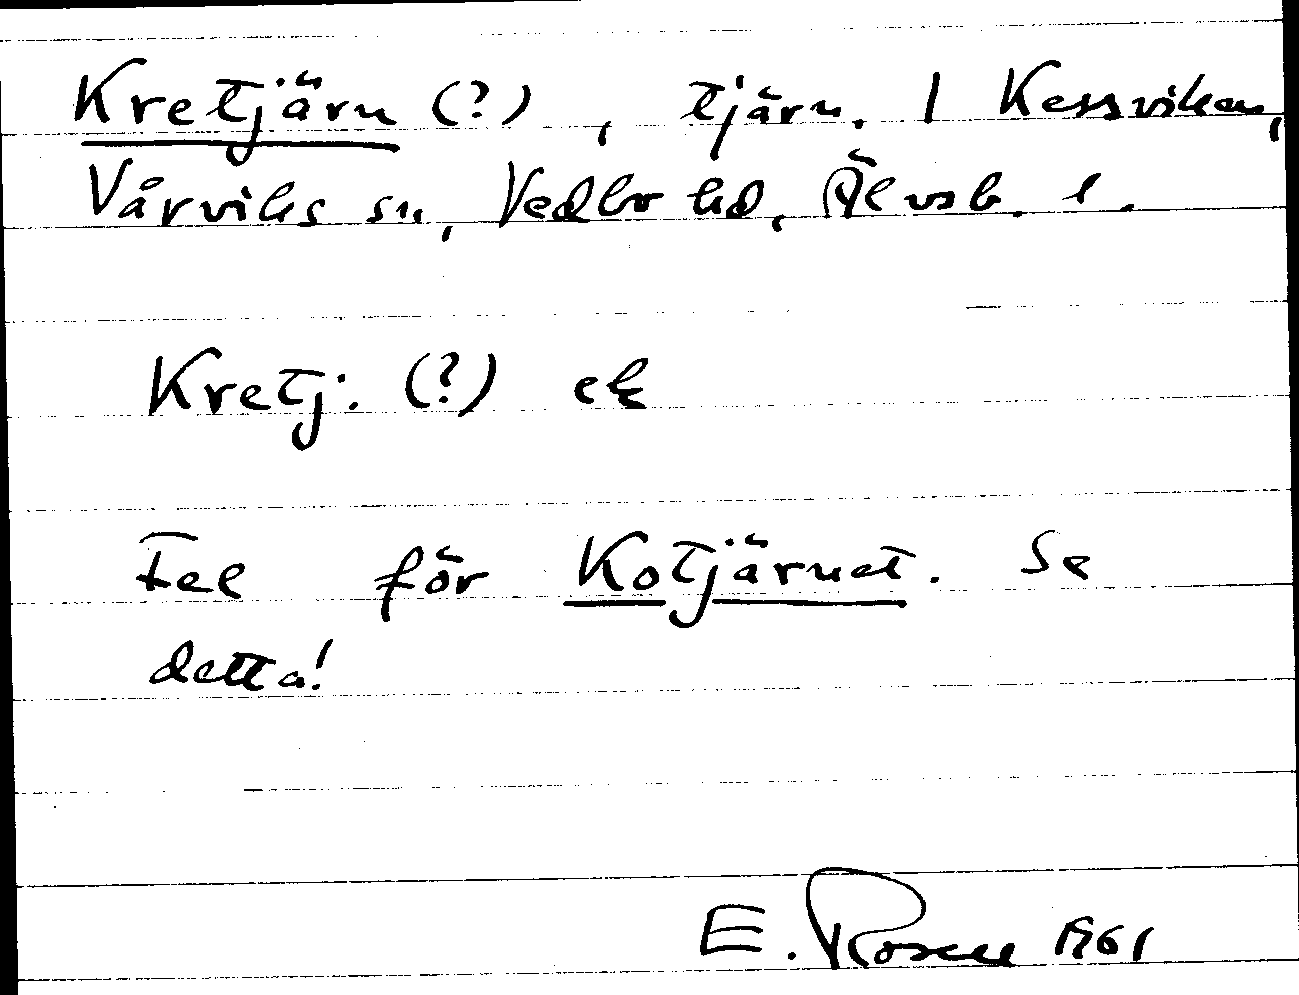 Kretjärn (?), tjärn. I Kessviken,
Vårviks sn, Vedbo hd, Älvsb. l.
Kretj. (?) ek
Fel för Kotjärnet. Se
detta!
E. Rosell 1961